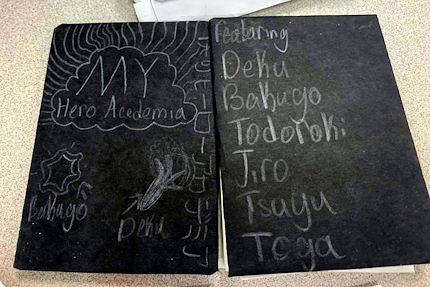 MY
Hero Acedemia
Bakugō
Deku
featuring
Deku
Bakugo
Todoroki
Jiro
Tsuyu
Toga